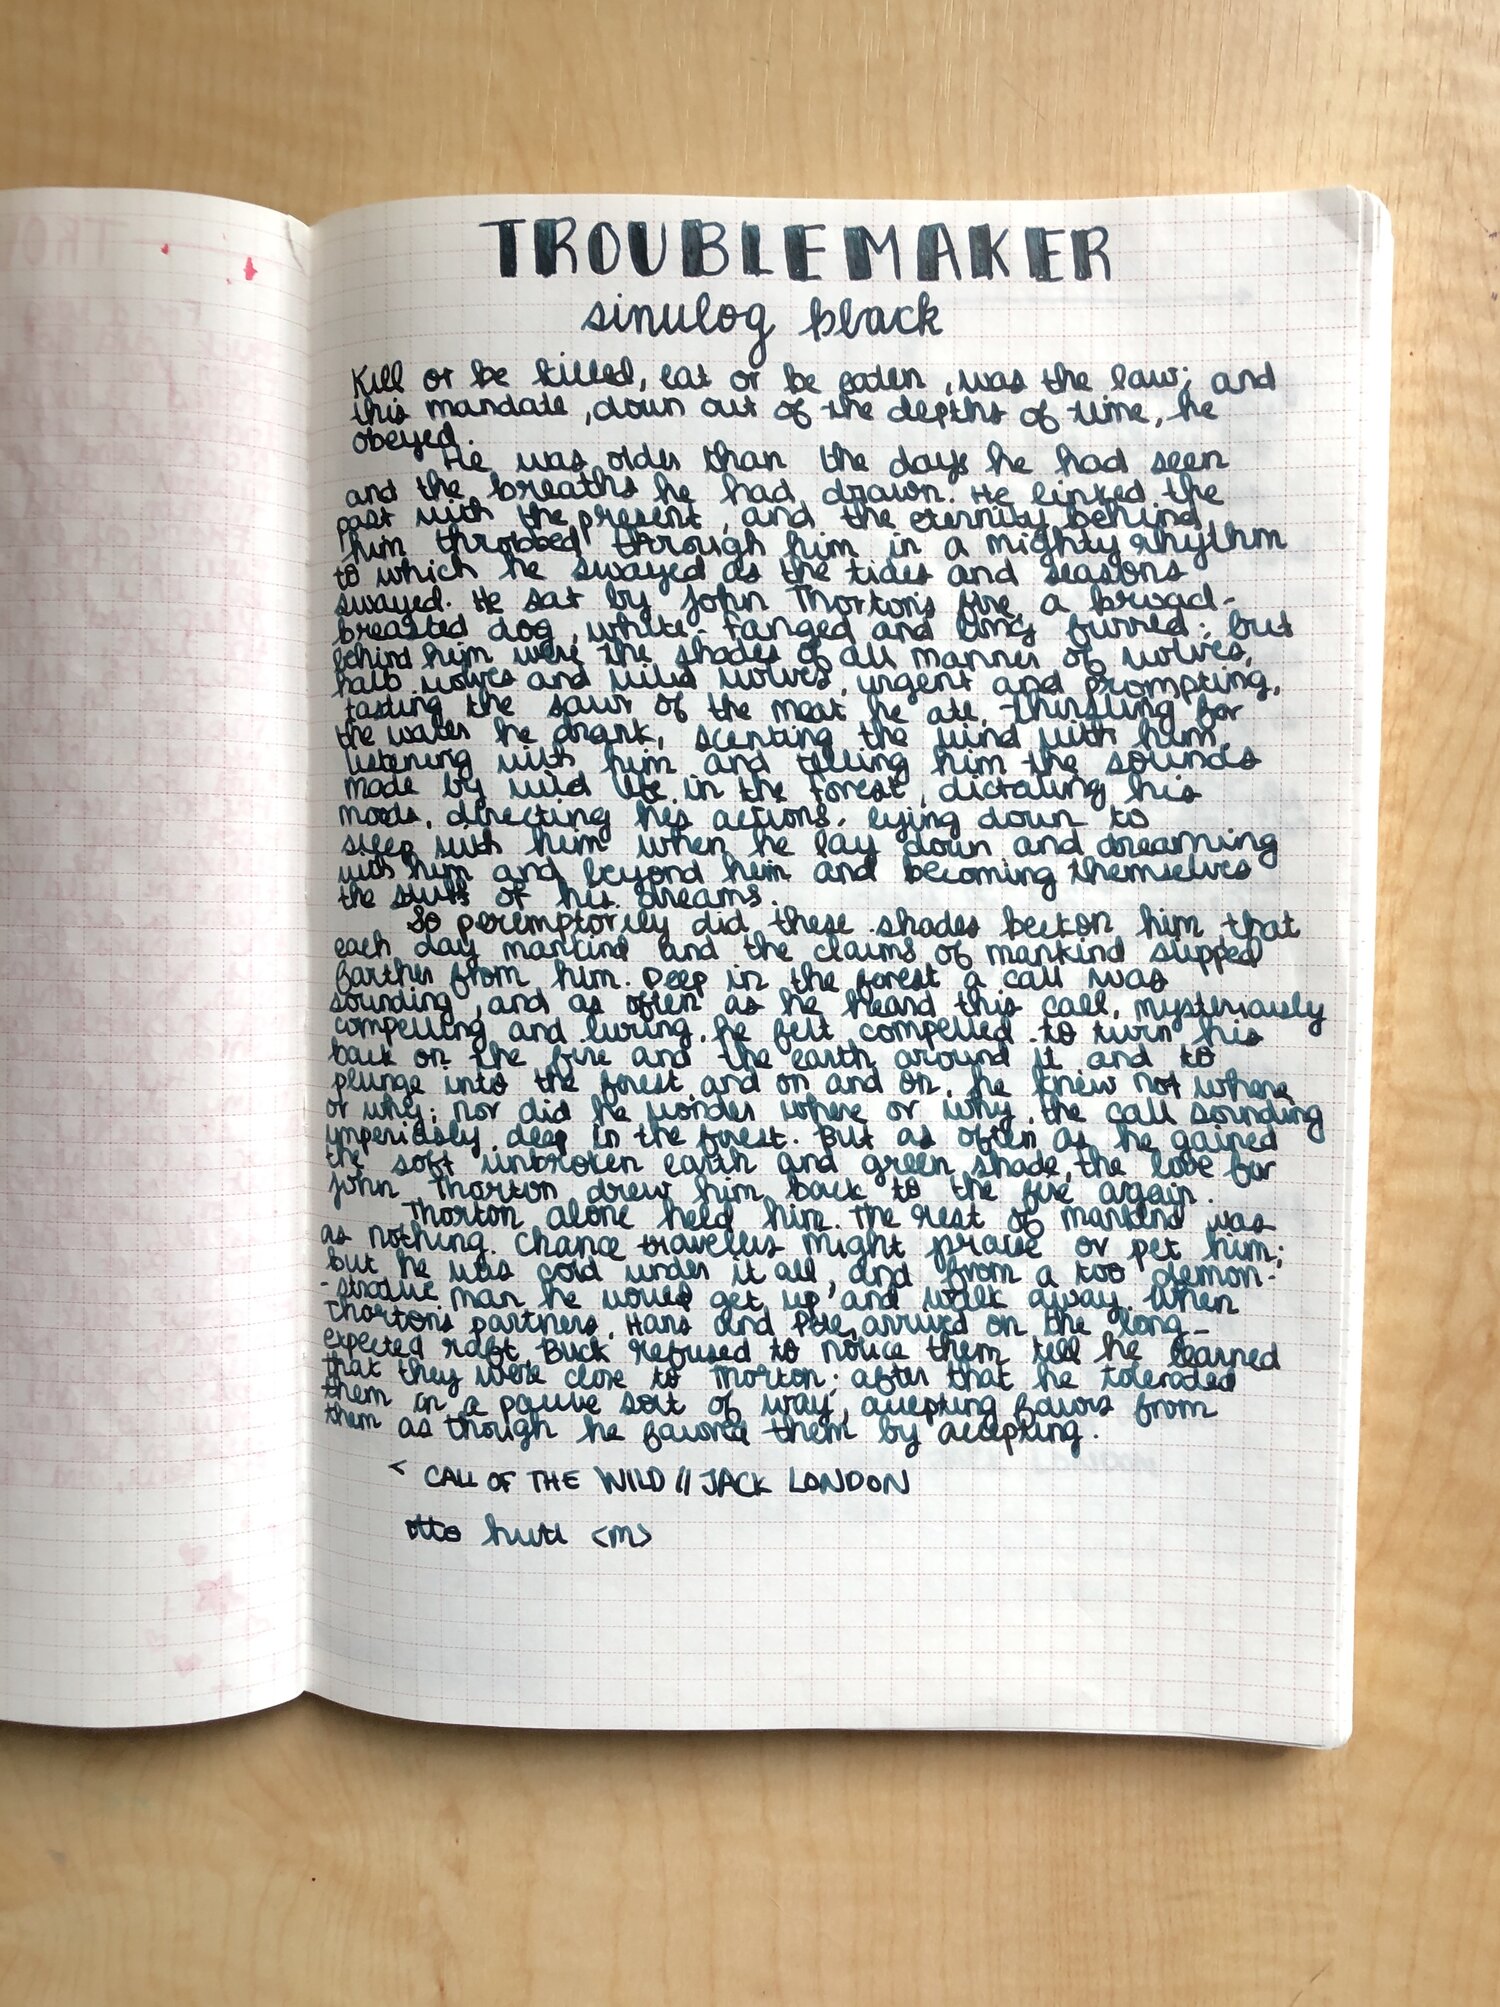 TROUBLEMAKER
sinulog black
Kill or be killed, eat or be eaten, was the law; and
this mandate, down out of the depths of time, he
obeyed.
He was older than the days he had seen
and the breaths he had drawn. He linked the
past with the present, and the eternity behind
him throbbed through him in a mighty rhythm
to which he swayed as the tides and seasons
swayed. He sat by John Thorton's fire, a broad-
breasted dog, white-fanged and long furred; but
behind him were the shades of all manner of wolves,
half wolves and wild wolves, urgent and prompting,
tasting the savor of the meat he ate, thirsting for
the water he drank, scenting the wind with him,
listening with him and telling him the sounds
made by wild life in the forest, dictating his
moods, directing his actions, lying down to
sleep with him when he lay down and dreaming
with him and beyond him and becoming themselves
the stuff of his dreams.
So peremptorily did these shades beckon him that
each day mankind and the claims of mankind slipped
farther from him. Deep in the forest a call was
sounding, and as often as he heard this call, mysteriously
compelling and luring, he felt compelled to turn his
back on the fire and the earth around it and to
plunge into the forest and on and on, he knew not where
or why; nor did he wonder where or why, the call sounding
imperiously, deep in the forest. But as often as he gained
the soft unbroken earth and green shade, the love for
John Thorton drew him back to the fire again.
Thorton alone held him. The rest of mankind was
as nothing. Chance travellers might praise or pet him;
but he was cold under it all, and from a too demon-
-strative man he would get up and walk away. When
Thorton's partners, Hans and Pete, arrived on the long-
expected raft, Buck refused to notice them till he learned
that they were close to Thorton; after that he tolerated
them in a passive sort of way, accepting favors from
them as though he favored them by accepting.
< CALL OF THE WILD // JACK LONDON
otto hutt <M>